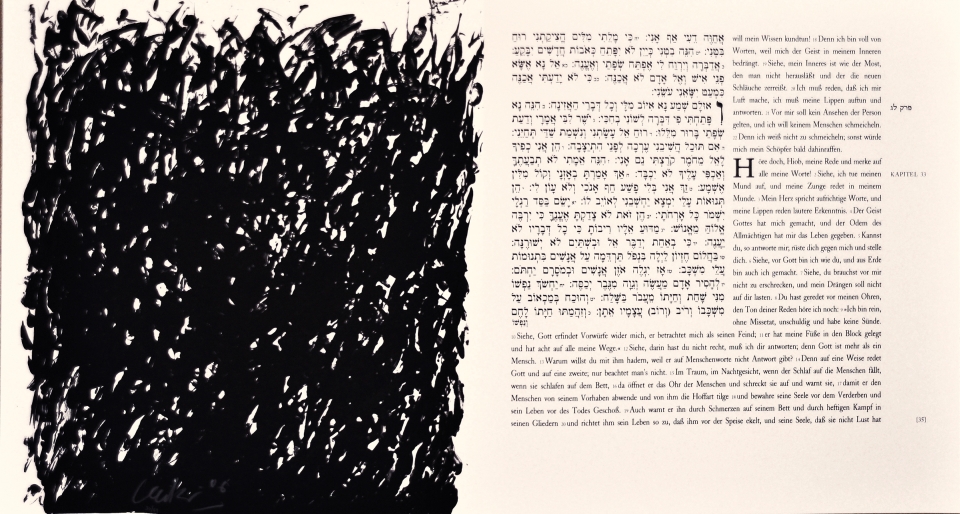 אֲחַוֶּה דֵעִי אַף אָנִי: כִּי מָלֵתִי מִלִּים הֱצִיקַתְנִי רוּחַ
בִּטְנִי: הִנֵּה בִטְנִי כְּיַיִן לֹא יִפָּתֵחַ כְּאֹבוֹת חֲדָשִׁים יִבָּקֵעַ:
אֲדַבְּרָה וְיִרְוַח לִי אֶפְתַּח שְׂפָתַי וְאֶעֱנֶה: אַל נָא אֶשָּׂא
פְנֵי אִישׁ וְאֶל אָדָם לֹא אֲכַנֶּה: כִּי לֹא יָדַעְתִּי אֲכַנֶּה
כִּמְעַט יִשָּׂאֵנִי עֹשֵׂנִי:
וְאוּלָם שְׁמַע נָא אִיּוֹב מִלָּי וְכָל דְּבָרַי הַאֲזִינָה: הִנֵּה נָא
פָּתַחְתִּי פִי דִּבְּרָה לְשׁוֹנִי בְחִכִּי: יֹשֶׁר לִבִּי אֲמָרָי וְדַעַת
שְׂפָתַי בָּרוּר מִלֵּלוּ: רוּחַ אֵל עָשָׂתְנִי וְנִשְׁמַת שַׁדַּי תְּחַיֵּנִי:
אִם תּוּכַל הֲשִׁיבֵנִי עֶרְכָה לְפָנַי הִתְיַצָּבָה: הֵן אֲנִי כְפִיךָ
לָאֵל מֵחֹמֶר קֹרַצְתִּי גַם אָנִי: הִנֵּה אֵמָתִי לֹא תְבַעֲתֶךָּ
וְאַכְפִּי עָלֶיךָ לֹא יִכְבָּד: אַךְ אָמַרְתָּ בְאָזְנָי וְקוֹל מִלִּין
אֶשְׁמָע: זַךְ אֲנִי בְּלִי פָשַׁע חַף אָנֹכִי וְלֹא עָוֺן לִי: הֵן
תְּנוּאוֹת עָלַי יִמְצָא יַחְשְׁבֵנִי לְאוֹיֵב לוֹ: יָשֵׂם בַּסַּד רַגְלָי
יִשְׁמֹר כָּל אָרְחֹתָי: הֶן זֹאת לֹא צָדַקְתָּ אֶעֱנֶךָּ כִּי יִרְבֶּה
אֱלוֹהַּ מֵאֱנוֹשׁ: מַדּוּעַ אֵלָיו רִיבוֹתָ כִּי כָל דְּבָרָיו לֹא
יַעֲנֶה: כִּי בְאַחַת יְדַבֶּר אֵל וּבִשְׁתַּיִם לֹא יְשׁוּרֶנָּה:
בַּחֲלוֹם חֶזְיוֹן לַיְלָה בִּנְפֹל תַּרְדֵּמָה עַל אֲנָשִׁים בִּתְנוּמוֹת
עֲלֵי מִשְׁכָּב: אָז יִגְלֶה אֹזֶן אֲנָשִׁים וּבְמֹסָרָם יַחְתֹּם:
לְהָסִיר אָדָם מַעֲשֶׂה וְגֵוָה מִגֶּבֶר יְכַסֶּה: יַחְשֹׂךְ נַפְשׁוֹ
מִנִּי שָׁחַת וְחַיָּתוֹ מֵעֲבֹר בַּשָּׁלַח: וְהוּכַח בְּמַכְאוֹב עַל
מִשְׁכָּבוֹ וְרִיב (וְרוֹב) עֲצָמָיו אֵתָן: וְזִהֲמַתּוּ חַיָּתוֹ לָחֶם
וְנַפְשׁוֹ
פרק לג
will mein Wissen kundtun! 18 Denn ich bin voll von
Worten, weil mich der Geist in meinem Inneren
bedrängt. 19 Siehe, mein Inneres ist wie der Most,
den man nicht herausläßt und der die neuen
Schläuche zerreißt. 20 Ich muß reden, daß ich mir
Luft mache, ich muß meine Lippen auftun und
antworten. 21 Vor mir soll kein Ansehen der Person
gelten, und ich will keinem Menschen schmeicheln.
22 Denn ich weiß nicht zu schmeicheln; sonst würde
mich mein Schöpfer bald dahinraffen.
Höre doch, Hiob, meine Rede und merke auf
alle meine Worte! 2 Siehe, ich tue meinen
Mund auf, und meine Zunge redet in meinem
Munde. 3 Mein Herz spricht aufrichtige Worte, und
meine Lippen reden lautere Erkenntnis. 4 Der Geist
Gottes hat mich gemacht, und der Odem des
Allmächtigen hat mir das Leben gegeben. 5 Kannst
du, so antworte mir; rüste dich gegen mich und stelle
dich. 6 Siehe, vor Gott bin ich wie du, und aus Erde
bin auch ich gemacht. 7 Siehe, du brauchst vor mir
nicht zu erschrecken, und mein Drängen soll nicht
auf dir lasten. 8 Du hast geredet vor meinen Ohren,
den Ton deiner Reden höre ich noch: 9 »Ich bin rein,
ohne Missetat, unschuldig und habe keine Sünde.
10 Siehe, Gott erfindet Vorwürfe wider mich, er betrachtet mich als seinen Feind; 11 er hat meine Füße in den Block gelegt
und hat acht auf alle meine Wege.« 12 Siehe, darin hast du nicht recht, muß ich dir antworten; denn Gott ist mehr als ein
Mensch. 13 Warum willst du mit ihm hadern, weil er auf Menschenworte nicht Antwort gibt? 14 Denn auf eine Weise redet
Gott und auf eine zweite; nur beachtet man's nicht. 15 Im Traum, im Nachtgesicht, wenn der Schlaf auf die Menschen fällt,
wenn sie schlafen auf dem Bett, 16 da öffnet er das Ohr der Menschen und schreckt sie auf und warnt sie, 17 damit er den
Menschen von seinem Vorhaben abwende und von ihm die Hoffart tilge 18 und bewahre seine Seele vor dem Verderben und
sein Leben vor des Todes Geschoß. 19 Auch warnt er ihn durch Schmerzen auf seinem Bett und durch heftigen Kampf in
seinen Gliedern 20 und richtet ihm sein Leben so zu, daß ihm vor der Speise ekelt, und seine Seele, daß sie nicht Lust hat
KAPITEL 33
[35]